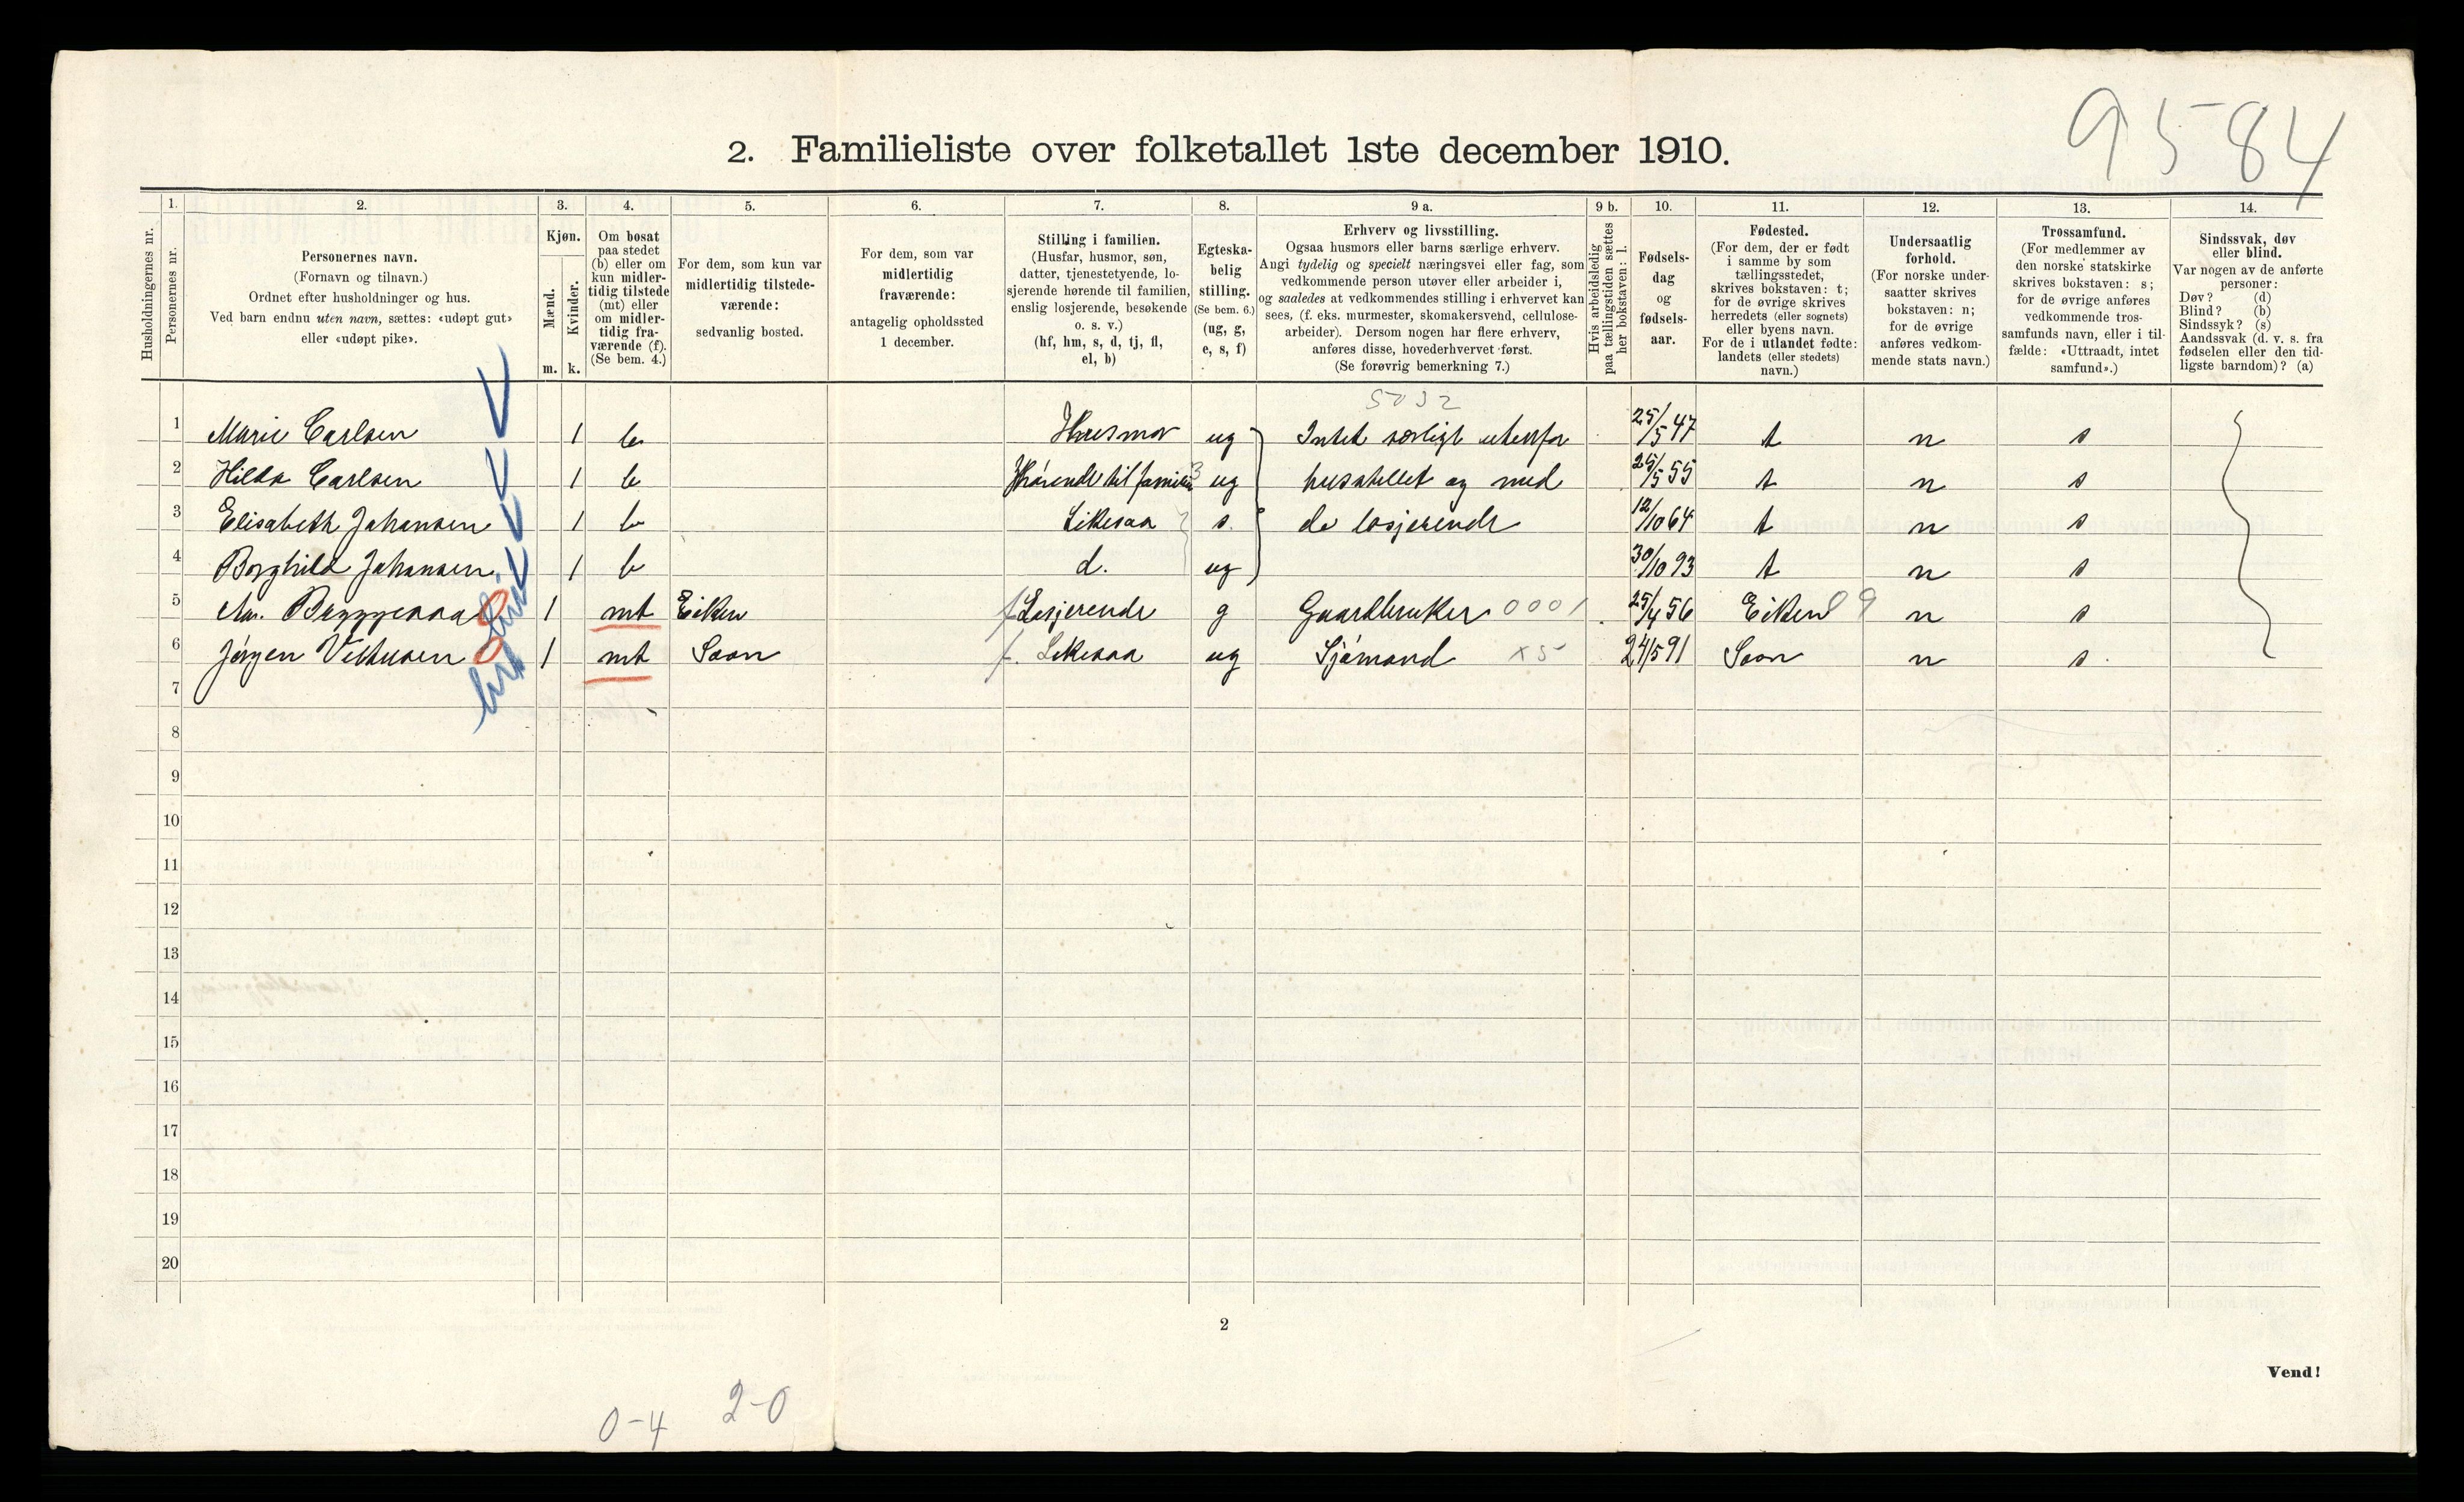 9584
2. Familieliste over folketallet 1ste december 1910.
1. 2. 3. 4. 5. 6. 7. 8. 9 a. 9 b. 10. 11. 12. 13. 14.
Husholdningernes nr.
Personernes nr.
Personernes navn.
(Fornavn og tilnavn.)
Ordnet efter husholdninger og hus.
Ved barn endnu uten navn, sættes: «udøpt gut»
eller «udøpt pike».
Kjøn.
Mænd.
Kvinder.
m. k.
Om bosat
paa stedet
(b) eller om
kun midler-
tidig tilstede
(mt) eller
om midler-
tidig fra-
værende (f).
(Se bem. 4.)
For dem, som kun var
midlertidig tilstede-
værende:
sedvanlig bosted.
For dem, som var
midlertidig
fraværende:
antagelig opholdssted
1 december.
Stilling i familien.
(Husfar, husmor, søn,
datter, tjenestetyende, lo-
sjerende hørende til familien,
enslig losjerende, besøkende
o. s. v.)
(hf, hm, s, d, tj, fl,
el, b)
Egteska-
belig
stilling.
(Se bem. 6.)
(ug, g,
e, s, f)
Erhverv og livsstilling.
Ogsaa husmors eller barns særlige erhverv.
Angi tydelig og specielt næringsvei eller fag, som
vedkommende person utøver eller arbeider i,
og saaledes at vedkommendes stilling i erhvervet kan
sees, (f. eks. murmester, skomakersvend, cellulose-
arbeider). Dersom nogen har flere erhverv,
anføres disse, hovederhvervet først.
(Se forøvrig bemerkning 7.)
Hvis arbeidsledig
paa tællingstiden sættes
her bokstaven: l.
Fødsels-
dag
og
fødsels-
aar.
Fødested.
(For dem, der er født
i samme by som
tællingsstedet,
skrives bokstaven: t;
for de øvrige skrives
herredets (eller sognets)
eller byens navn.
For de i utlandet fødte:
landets (eller stedets)
navn.)
Undersaatlig
forhold.
(For norske under-
saatter skrives
bokstaven: n;
for de øvrige
anføres vedkom-
mende stats navn.)
Trossamfund.
(For medlemmer av
den norske statskirke
skrives bokstaven: s;
for de øvrige anføres
vedkommende tros-
samfunds navn, eller i til-
fælde: «Uttraadt, intet
samfund».)
Sindssvak, døv
eller blind.
Var nogen av de anførte
personer:
Døv? (d)
Blind? (b)
Sindssyk? (s)
Aandssvak (d. v. s. fra
fødselen eller den tid-
ligste barndom)? (a)
5032
1 Marie Carlsen 1 b Husmor ug Intet særligt utenfor 25/5 47 t n s
2 Hilda Carlsen 1 b Hørende til familien 3 ug husstellet og med 25/5 55 t n s
3 Elisabeth Johansen 1 b Likesaa s. de losjerende 12/10 64 t n s
4 Borghild Johansen. 1 b d. ug 30/10 93 t n s
5 1 mt Eiken f Losjerende g Gaardbruker 0001 25/4 56 Eiken 9 n s
6 Jørgen 1 mt Soon f. Likesaa ug Sjømand x5 24/5 91 Soon n s.
7
8
9
10
11
12
13
14
15
16
17
18
19
20
2
Vend!
0-4 2-0